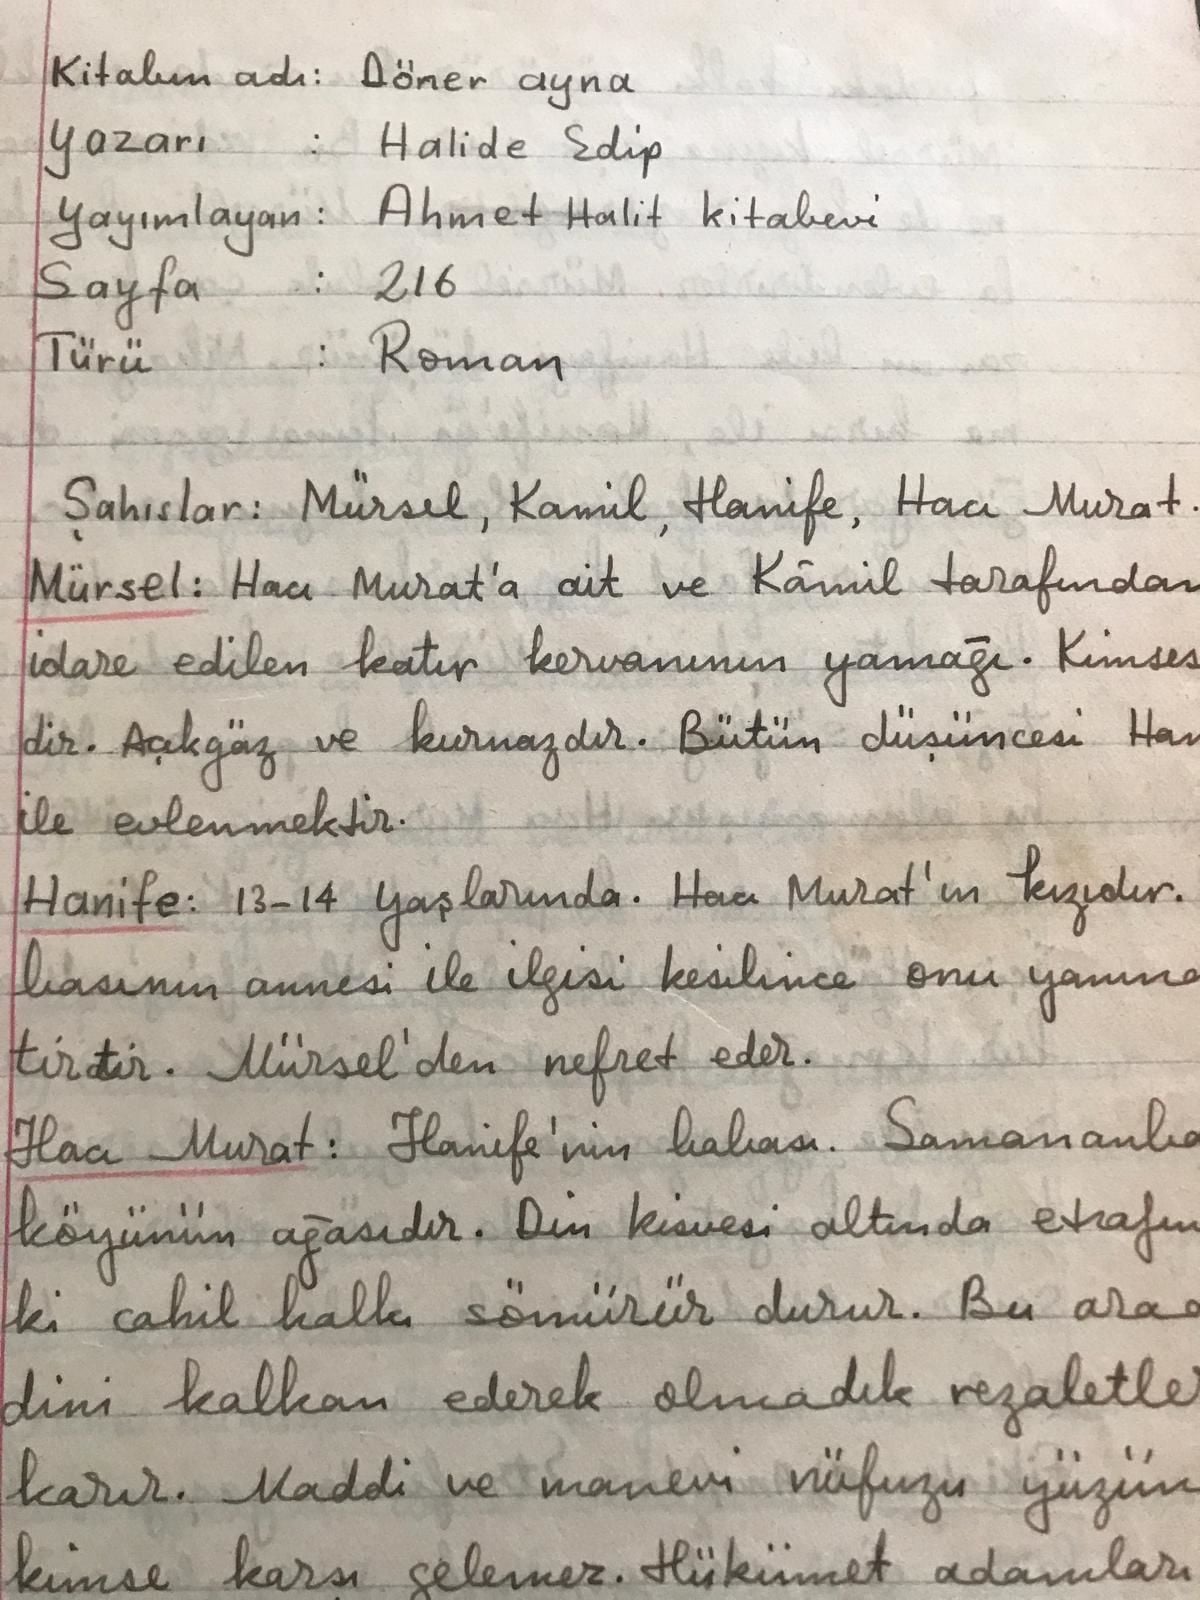 Kitabın adı: Döner ayna
Yazarı : Halide Edip
Yayımlayan: Ahmet Halit kitabevi
Sayfa : 216
Türü : Roman
Şahıslar: Mürsel, Kamil, Hanife, Hacı Murat.
Mürsel: Hacı Murat'a ait ve Kâmil tarafından
idare edilen katır kervanının yamağı. Kimses
dir. Açıkgöz ve kurnazdır. Bütün düşüncesi Han
ile evlenmektir.
Hanife: 13-14 yaşlarında. Hacı Murat'ın kızıdır.
basının annesi ile ilgisi kesilince onu yanına
tirtir. Mürsel'den nefret eder.
Hacı Murat: Hanife'nin babası. Samananba
köyünün ağasıdır. Din kisvesi altında etrafın
ki cahil halkı sömürür durur. Bu arad
dini kalkan ederek olmadık rezaletler
karır. Maddi ve manevi nüfuzu yüzün
kimse karşı gelemez. Hükümet adamları